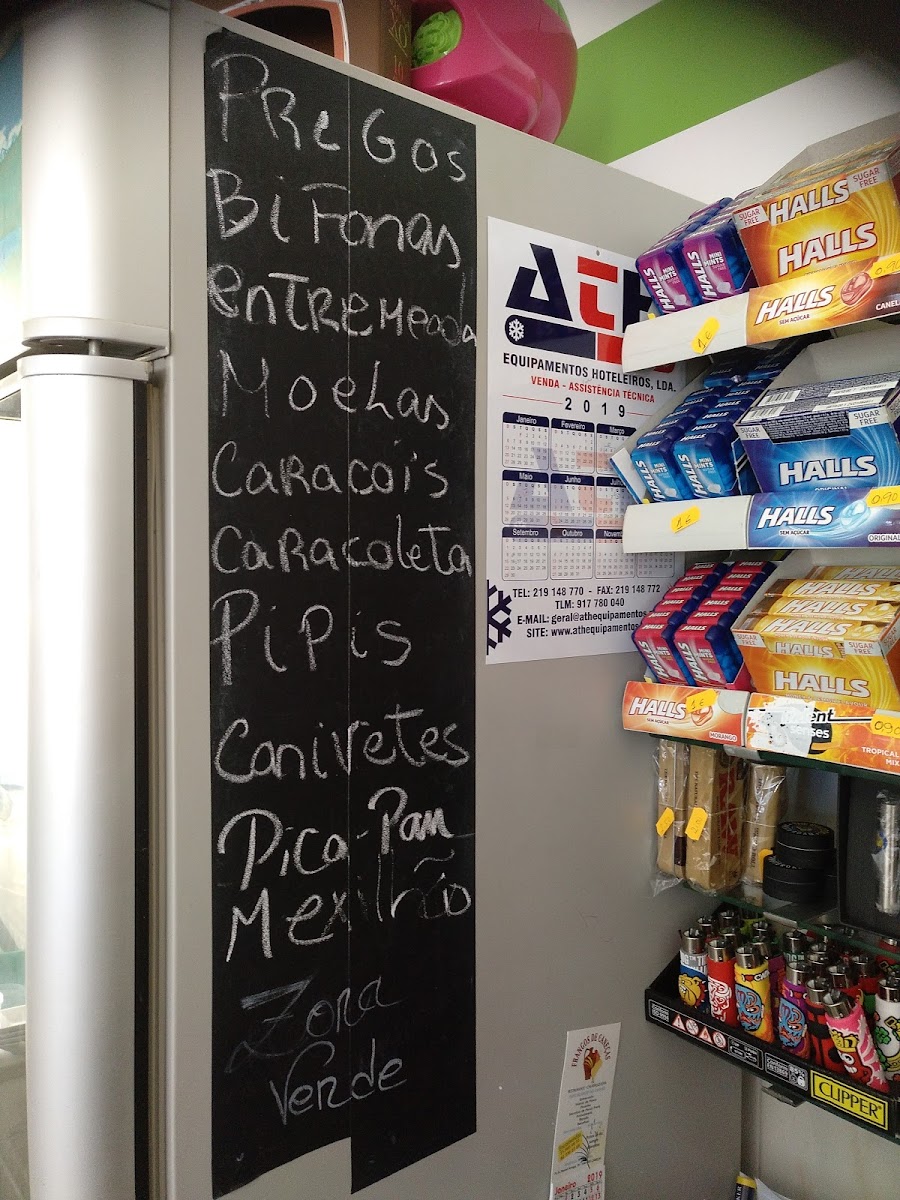 PReGos
BiFanas
enTREMeada
MoeLas
CaRacois
CaRacoLeTa
PiPis
Canivetes
Pica-Pau
Mexilhão
Zona
Verde
EQUIPAMENTOS HOTELEIROS, LDA.
VENDA - ASSISTÊNCIA TÉCNICA
2019
Janeiro Fevereiro Março
Maio Junho
Setembro Outubro
TEL: 219 148 770 - FAX: 219 148 772
TLM: 917 780 040
E-MAIL: geral@athequipamentos
SITE: www.athequipamentos
FRANGOS DE CANEÇAS
Janeiro 2019
HALLS SUGAR FREE
SUGAR FREE HALLS
HALLS MINI MINTS
HALLS
SEM AÇÚCAR
0,90
1€
SUGAR FREE
HALLS
MINI MINTS
HALLS
SEM AÇÚCAR
ORIGINAL
0,90
1€
HALLS
HALLS
HALLS
SUGAR FREE
HALLS
HALLS
SEM AÇÚCAR
MORANGO
1€
TROPICAL
MIX
0,90
CLIPPER